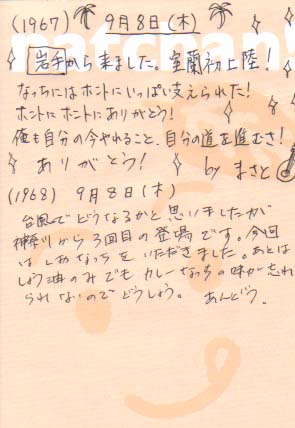 (1967) 9月8日(木)
natchan!
岩手から来ました。室蘭初上陸!
なっちにはホントにいっぱい支えられた!
ホントにホントにありがとう!
俺も自分の今やれること、自分の道を進むさ!
ありがとう! by まさと
(1968) 9月8日(木)
台風でどうなるかと思いましたが
神奈川から3回目の登場です。今回
はしおなっちをいただきました。あとは
しょう油のみでもカレーなっちの味が忘れ
られないのでどうしよう。 あんどう.